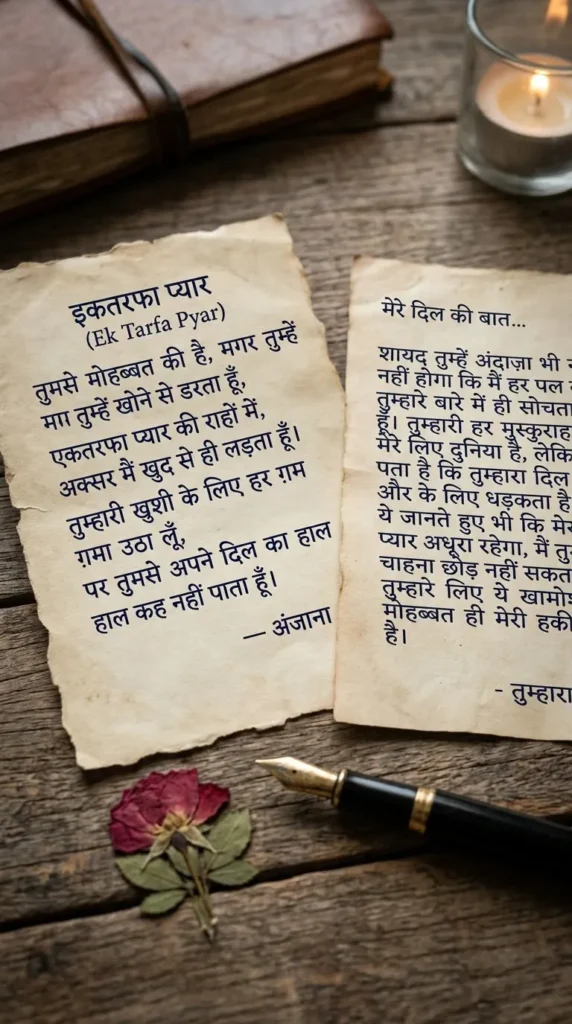 इकतरफा प्यार
(Ek Tarfa Pyar)
तुमसे मोहब्बत की है, मगर तुम्हें
माा तुम्हें खोने से डरता हूँ,
एकतरफा प्यार की राहों में,
अक्सर मैं खुद से ही लड़ता हूँ।
तुम्हारी खुशी के लिए हर ग़म
ग़मा उठा लूँ,
पर तुमसे अपने दिल का हाल
हाल कह नहीं पाता हूँ।
— अंजाना
मेरे दिल की बात...
शायद तुम्हें अंदाज़ा भी
नहीं होगा कि मैं हर पल
तुम्हारे बारे में ही सोचता
हूँ। तुम्हारी हर मुस्कुराह
मेरे लिए दुनिया है, लेकि
पता है कि तुम्हारा दिल
और के लिए धड़कता है
ये जानते हुए भी कि मेर
प्यार अधूरा रहेगा, मैं तु
चाहना छोड़ नहीं सकत
तुम्हारे लिए ये खामोश
मोहब्बत ही मेरी हकी
है।
- तुम्हारा